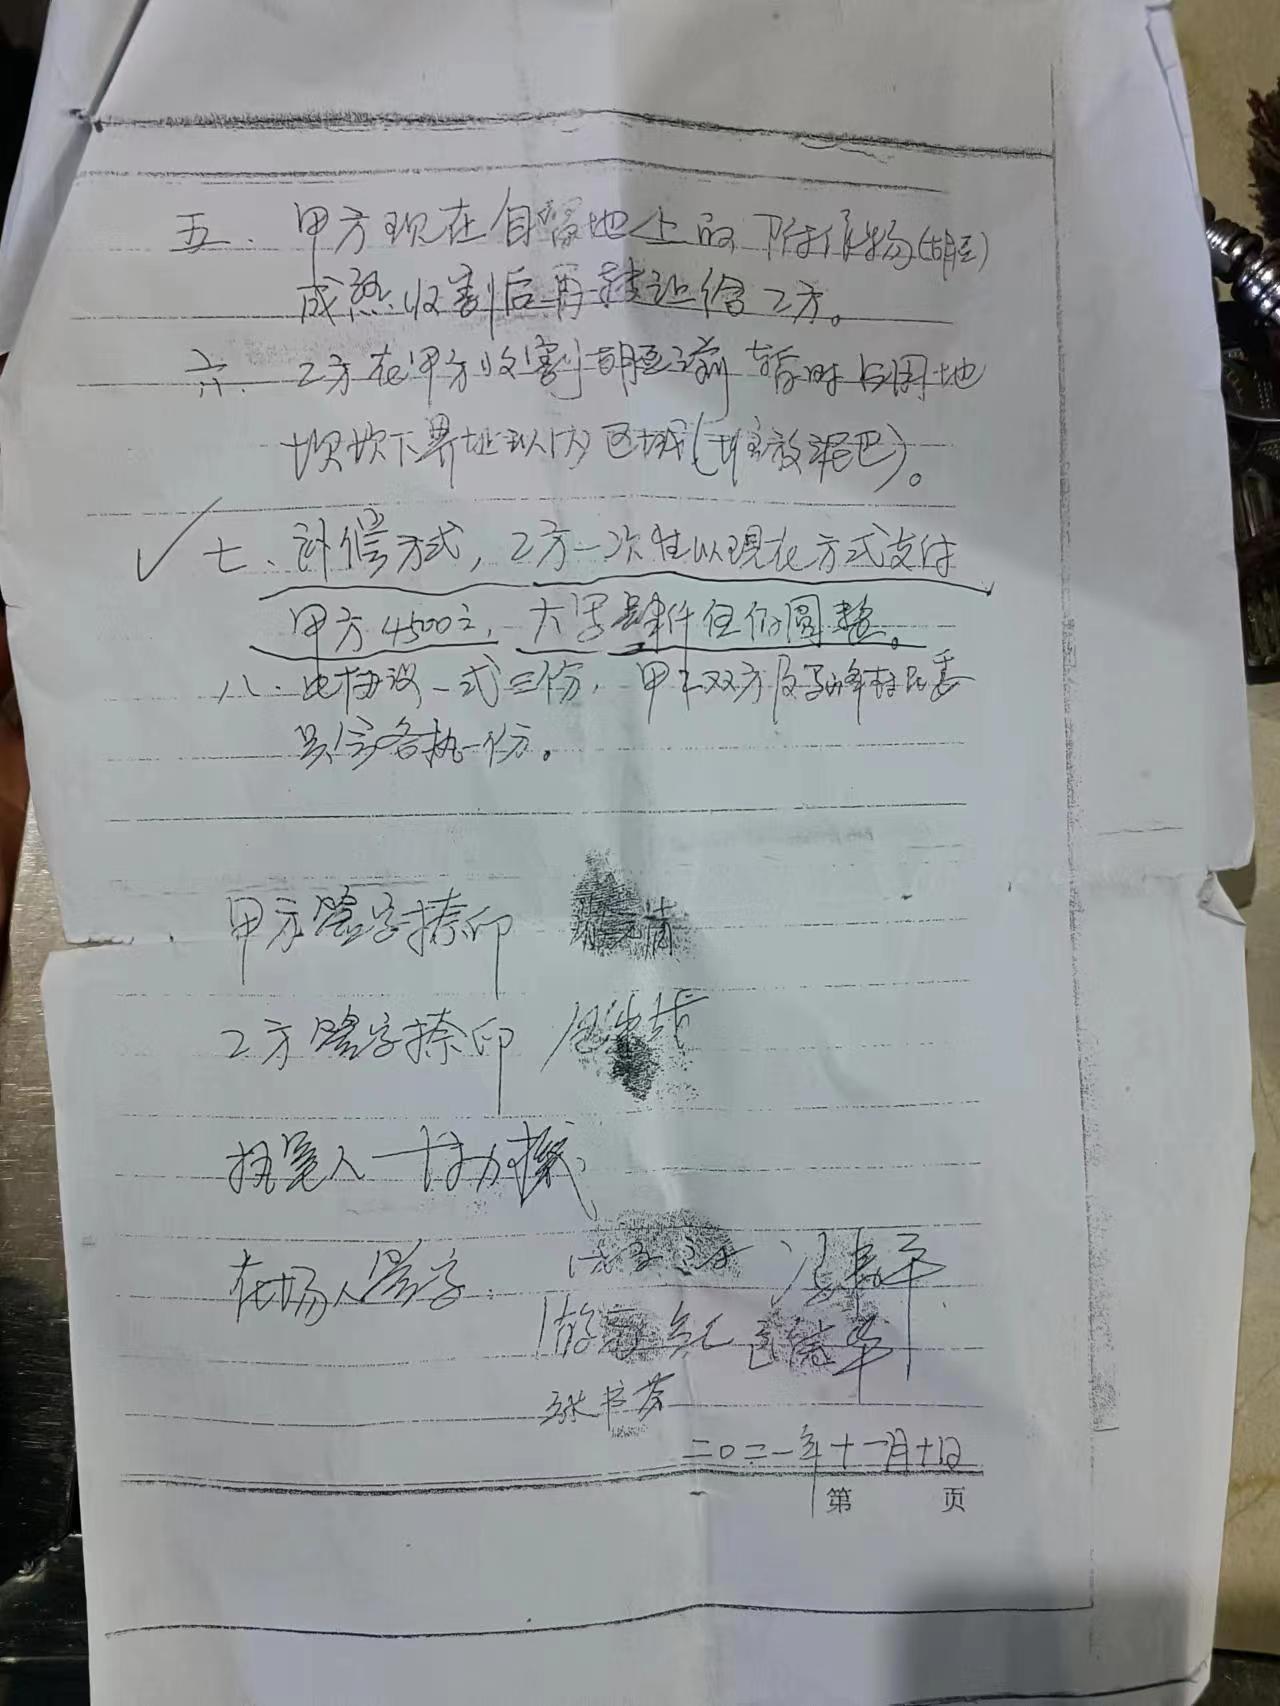 五、甲方现在自留地上的附作物(胡豆)
成熟收割后再转让给乙方。
六、乙方在甲方收割胡豆之前暂时占用地
坝坎下界址以内区域(堆放泥巴)。
七、补偿方式,乙方一次性以现在方式支付
甲方4500元,大写肆仟伍佰圆整。
八、此协议一式三份,甲乙双方及马峰村民委
员会各执一份。
甲方签字捺印
乙方签字捺印
执笔人
在场人签字:
张书芬
二〇二一年十一月十日
第 页